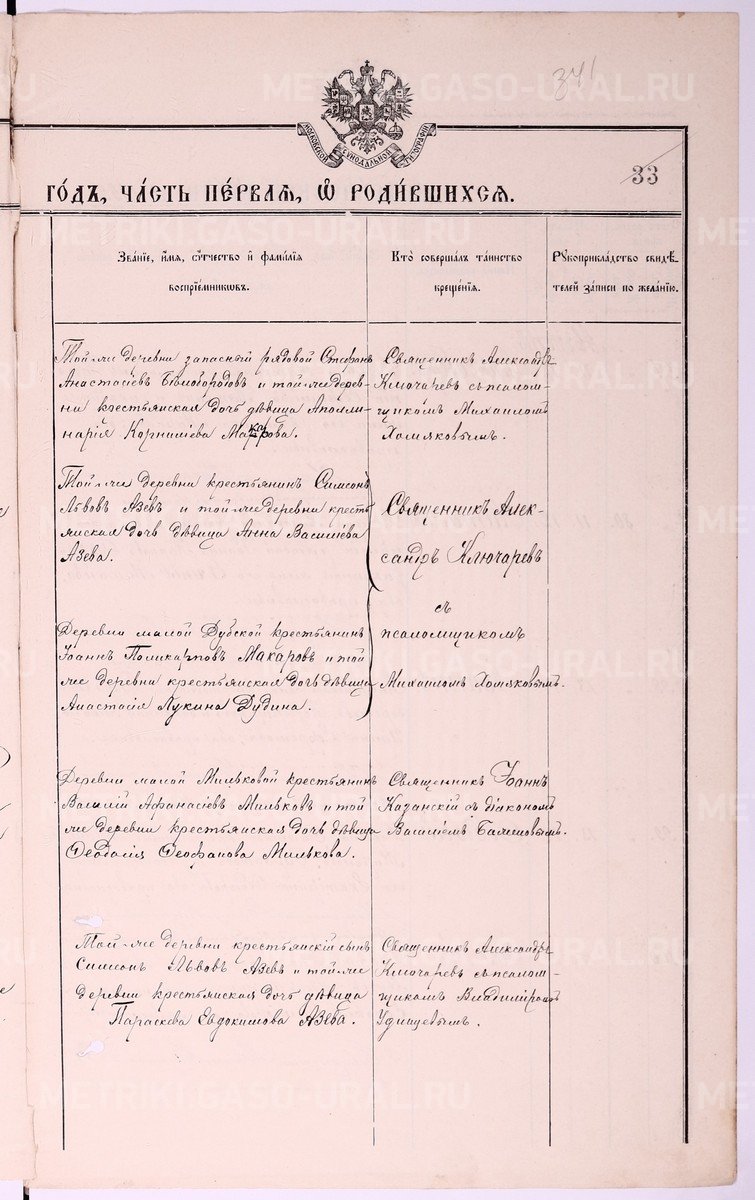 341
33
МОСКОВСКОЙ СѴНОДАЛЬНОЙ ТИПОГРАФІИ
ГО́ДЪ, ЧА́СТЬ ПЕ́РВАѦ, Ѽ РОДИ́ВШИХСѦ.
Зва́нїе, и́мѧ, ѻ҆́тчество и҆ фами́лїѧ
воспрїе́мникѡвъ.
Кто̀ соверша́лъ та́инство
креще́нїѧ.
Рꙋкоприкла́дство свидѣ́-
телей за́писи по жела́нїю.
Той-же деревни запасный рядовой Стефанъ
Анастасіевъ Бѣлобородовъ и той же дерев-
ни крестьянская дочь дѣвица Аполли-
нарія Корниліева Макарова.
Священникъ Александръ
Ключаревъ съ псалом-
щикомъ Михаиломъ
Хомяковымъ.
Той-же деревни крестьянинъ Симеонъ
Львовъ Азевъ и той-же деревни кресть-
янская дочь дѣвица Анна Василіева
Азева.
Деревни малой Дубской крестьянинъ
Іоаннъ Поликарповъ Макаровъ и той
же деревни крестьянская дочь дѣвица
Анастасія Лукина Дудина.
Священникъ Алек-
сандръ Ключаревъ
съ
псаломщикомъ
Михаиломъ Хомяковымъ.
Деревни малой Мильковой крестьянинъ
Василій Афанасіевъ Мильковъ и той
же деревни крестьянская дочь дѣвица
Ѳеодосія Ѳеофанова Милькова.
Священникъ Іоаннъ
Казанскій съ діакономъ
Василіемъ
Той-же деревни крестьянскій сынъ
Симеонъ Львовъ Азевъ и той же
деревни крестьянская дочь дѣвица
Параскева Евдокимова Азева.
Священникъ Александръ
Ключаревъ съ псалом-
щикомъ Владиміромъ
Удинцевымъ.
METRIKI.GASO-URAL.RU